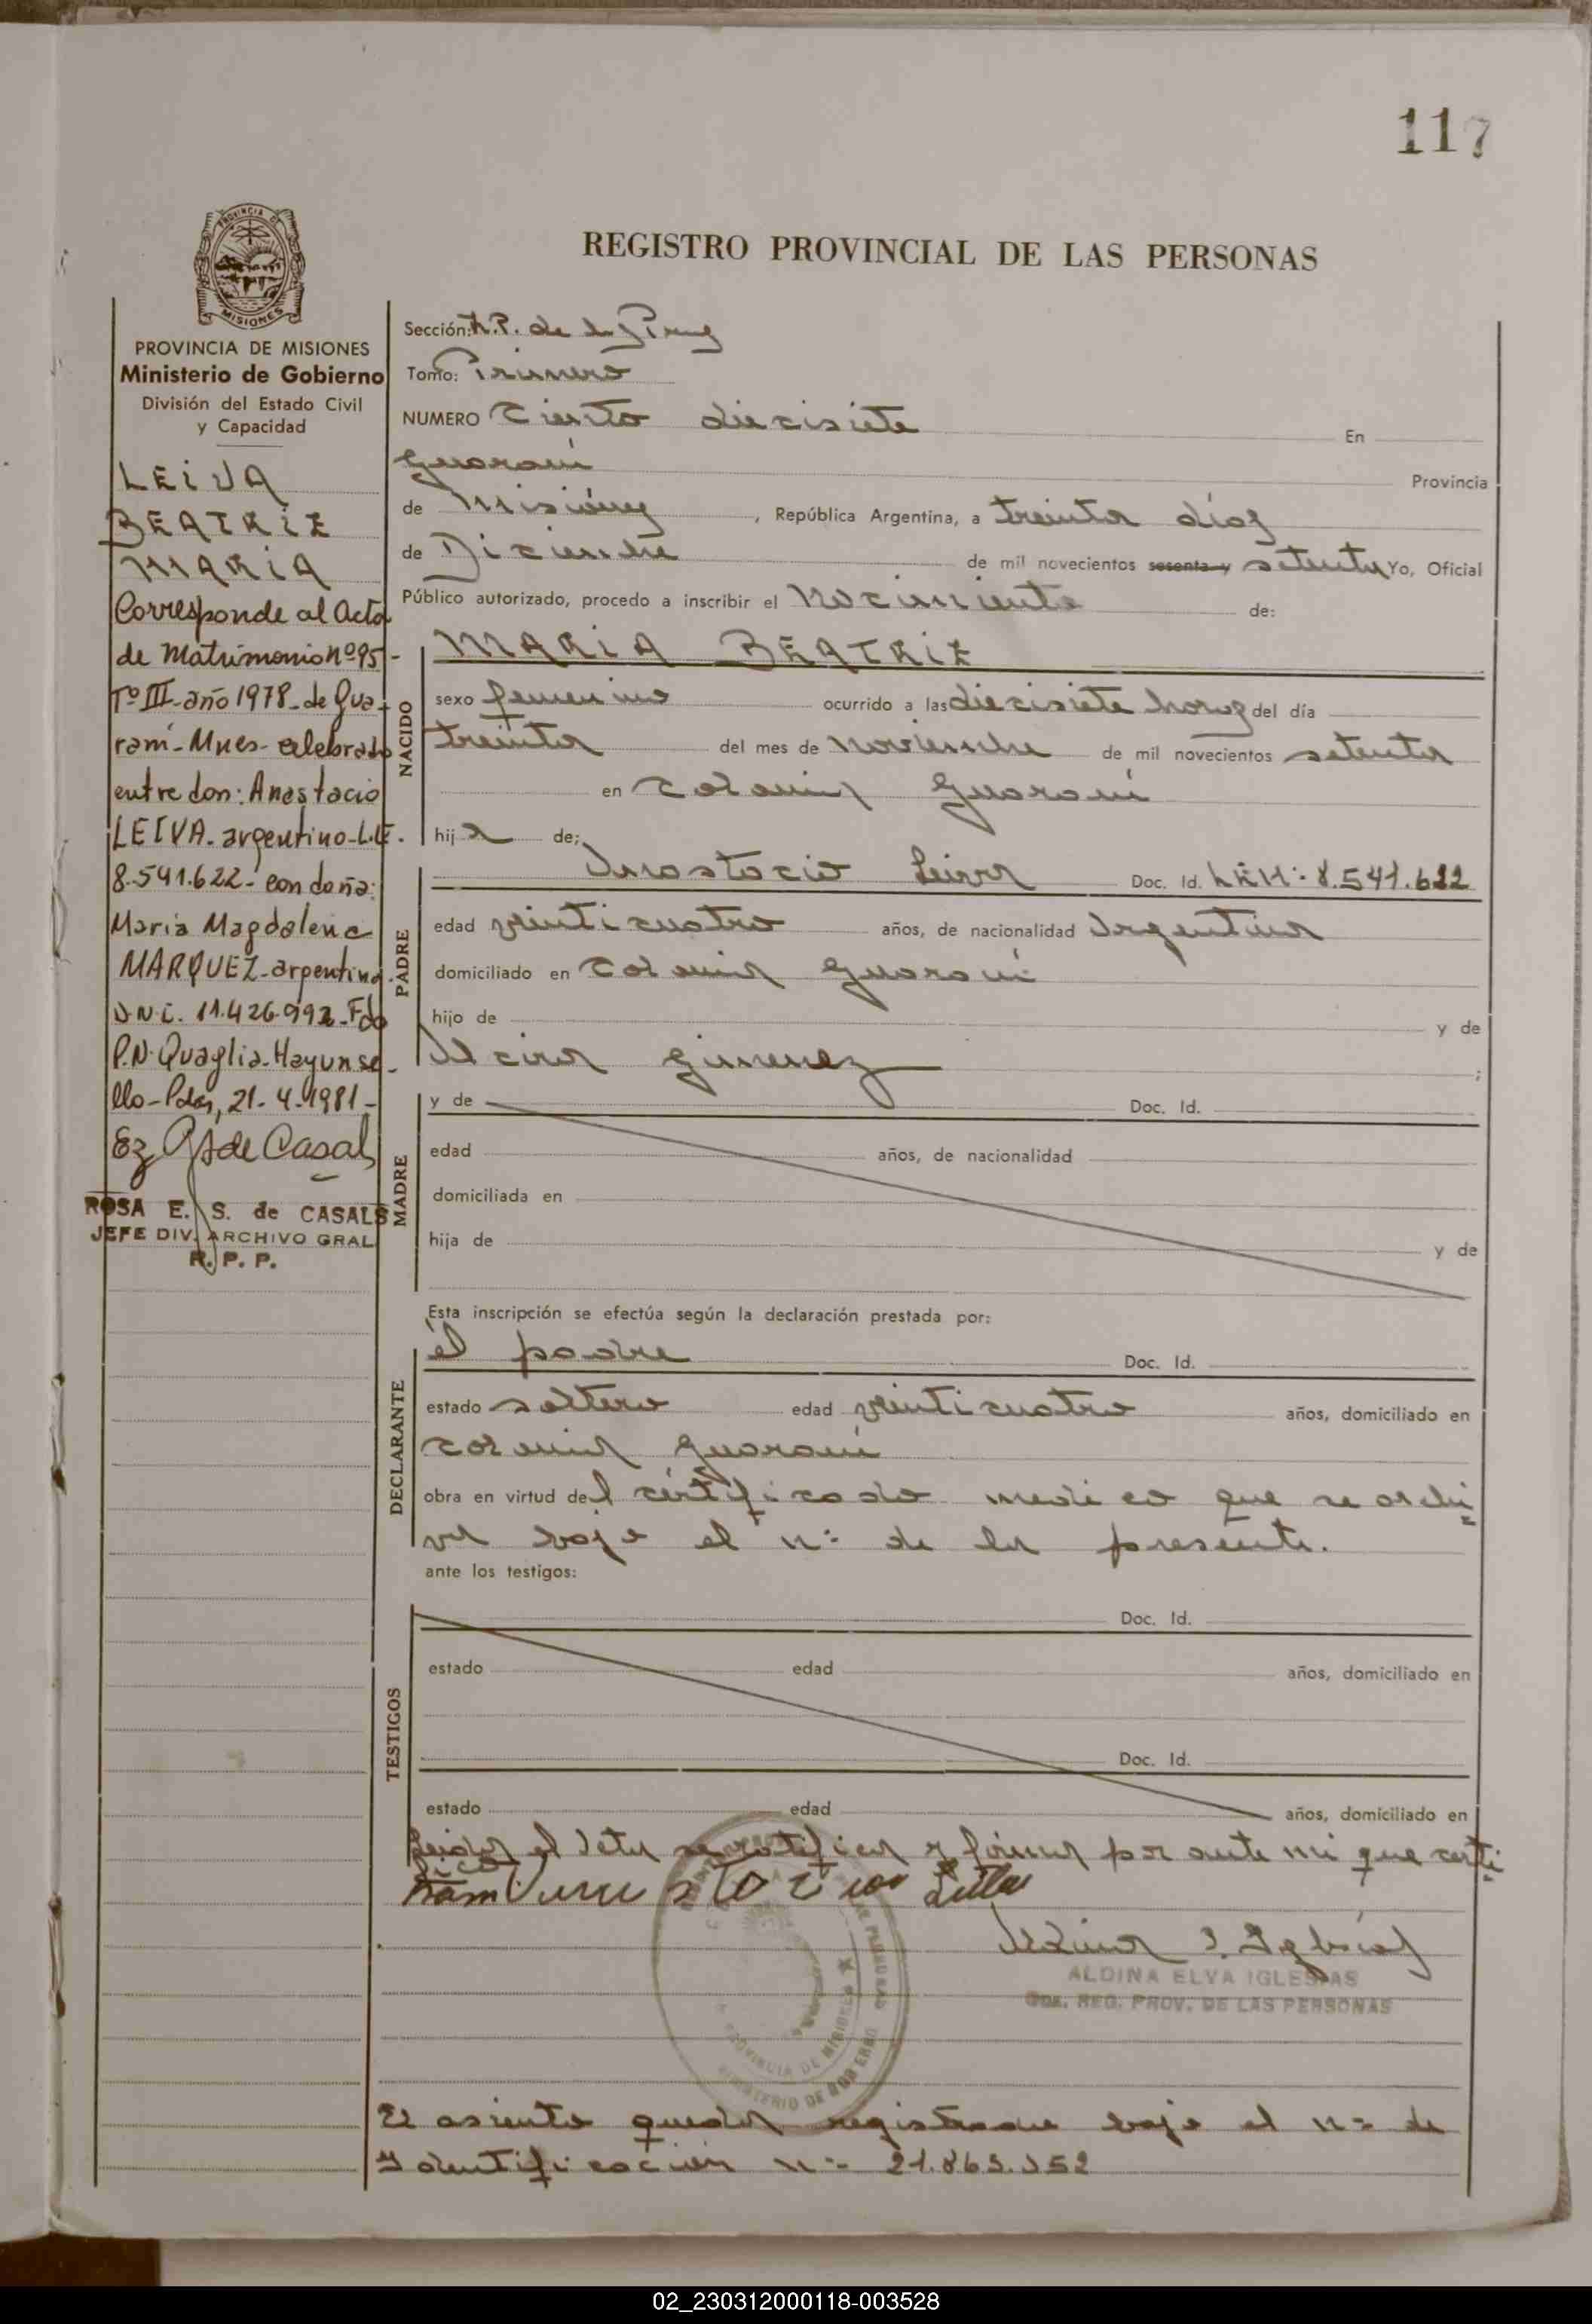 117
PROVINCIA DE
MISIONES
REGISTRO PROVINCIAL DE LAS PERSONAS
PROVINCIA DE MISIONES
Ministerio de Gobierno
División del Estado Civil
y Capacidad
LEIVA
BEATRIZ
MARIA
Corresponde al Acta
de Matrimonio nº 95-
Tº III-año 1978-de Gua-
raní-Mnes-celebrado
entre don: Anastacio
LEIVA-argentino-L.E.
8.541.622- con doña:
Maria Magdalena
MARQUEZ-argentina-
D.N.I. 11.426.992-Fdo
P.N. Quaglia-Hay un se-
llo-Pdas, 21-4-1981-
de Casals
ROSA E. S. de CASALS
JEFE DIV. ARCHIVO GRAL
R. P. P.
Sección: R.P. de las
Tomo: Primero
NUMERO Ciento diecisiete En
Guaraní Provincia
de Misiones, República Argentina, a treinta días
de Diciembre de mil novecientos sesenta y setenta Yo, Oficial
Público autorizado, procedo a inscribir el Nacimiento de:
MARIA BEATRIZ
NACIDO
sexo femenino ocurrido a las diecisiete horas del día
treinta del mes de noviembre de mil novecientos setenta
en Colonia Guaraní
hija de;
PADRE
Anastacio Leiva Doc. Id. 8.541.622
edad veinticuatro años, de nacionalidad Argentina
domiciliado en Colonia Guaraní
hijo de y de
Gimenez ;
MADRE
y de Doc. Id.
edad años, de nacionalidad
domiciliada en
hija de y de
Esta inscripción se efectúa según la declaración prestada por:
DECLARANTE
el padre Doc. Id.
estado soltero edad veinticuatro años, domiciliado en
Colonia Guaraní
obra en virtud del certificado medico que se archi-
va bajo el nº de la presente.
ante los testigos:
TESTIGOS
Doc. Id.
estado edad años, domiciliado en
Doc. Id.
estado edad años, domiciliado en
Leida el Acta se ratifica y firma por ante mi que certi-
fico
Iglesias
ALDINA ELVA IGLESIAS
REG. PROV. DE LAS PERSONAS
PROVINCIA DE MISIONES
MINISTERIO DE GOBIERNO
El asiento queda registrado bajo el nº de
Identificación nº 21.863.352
02_230312000118-003528